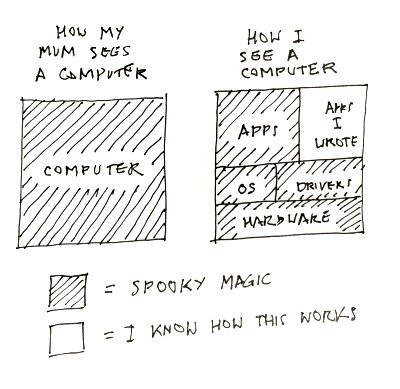 HOW MY
MUM SEES
A COMPUTER
COMPUTER
HOW I
SEE A
COMPUTER
APPS
APPS
I
WROTE
OS
DRIVERS
HARDWARE
= SPOOKY MAGIC
= I KNOW HOW THIS WORKS